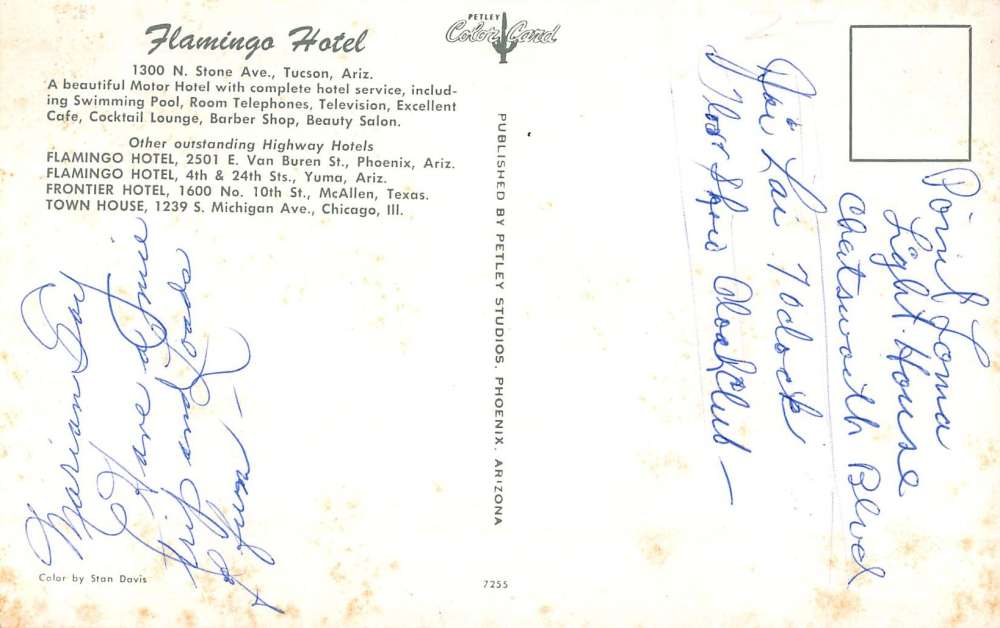 Flamingo Hotel
1300 N. Stone Ave., Tucson, Ariz.
A beautiful Motor Hotel with complete hotel service, includ-
ing Swimming Pool, Room Telephones, Television, Excellent
Cafe, Cocktail Lounge, Barber Shop, Beauty Salon.
Other outstanding Highway Hotels
FLAMINGO HOTEL, 2501 E. Van Buren St., Phoenix, Ariz.
FLAMINGO HOTEL, 4th & 24th Sts., Yuma, Ariz.
FRONTIER HOTEL, 1600 No. 10th St., McAllen, Texas.
TOWN HOUSE, 1239 S. Michigan Ave., Chicago, Ill.
Marian
Have a
trip and Loads
of fun —
Color by Stan Davis
PETLEY
Color Card
PUBLISHED BY PETLEY STUDIOS, PHOENIX, ARIZONA
7255
Point Loma
Light-House
Chatsworth Blvd
Jai Lai 7 oclock
Floor Show Club —